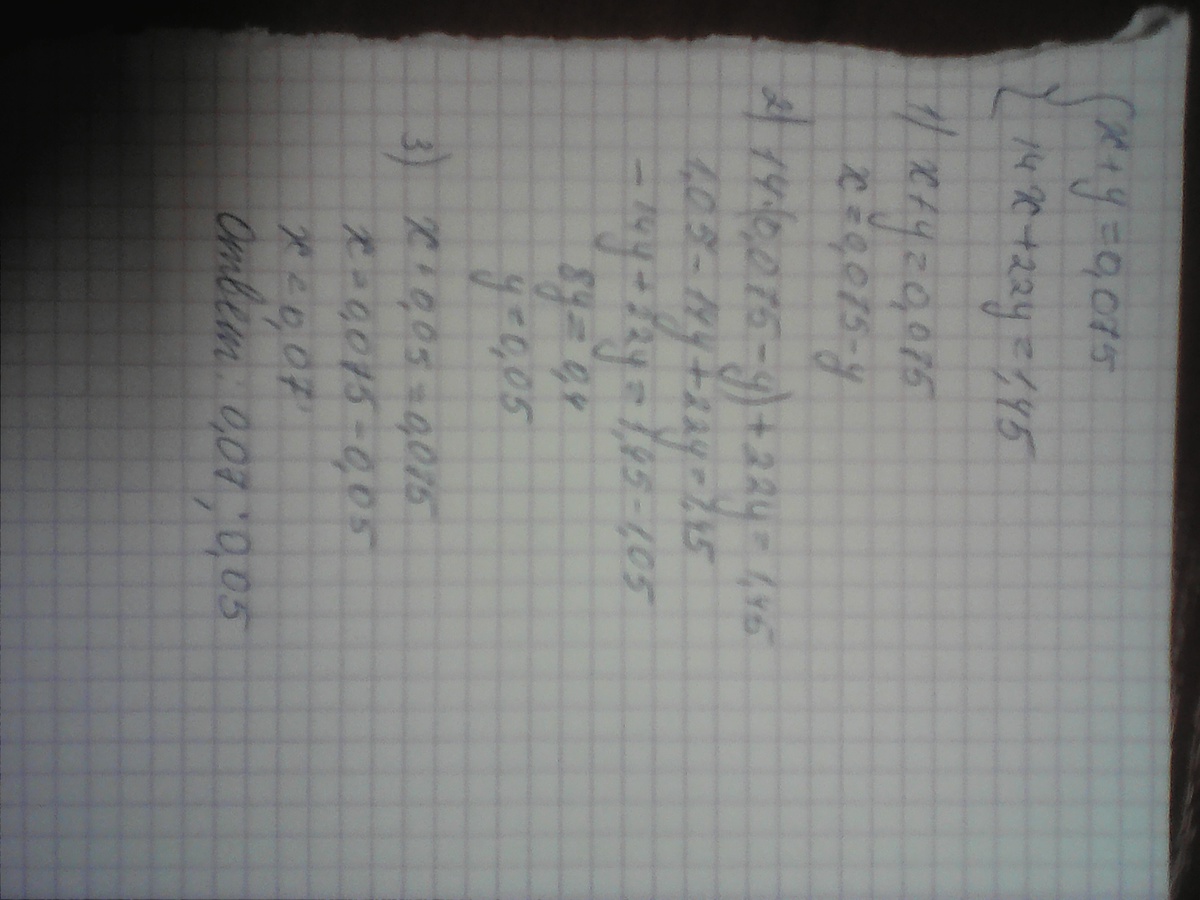 { x + y = 0,075
14x + 22y = 1,45
1) x + y = 0,075
x = 0,075 - y
2) 14·(0,075 - y) + 22y = 1,45
1,05 - 14y + 22y = 1,45
- 14y + 22y = 1,45 - 1,05
8y = 0,4
y = 0,05
3) x + 0,05 = 0,075
x = 0,075 - 0,05
x = 0,07
Ответ: 0,07; 0,05